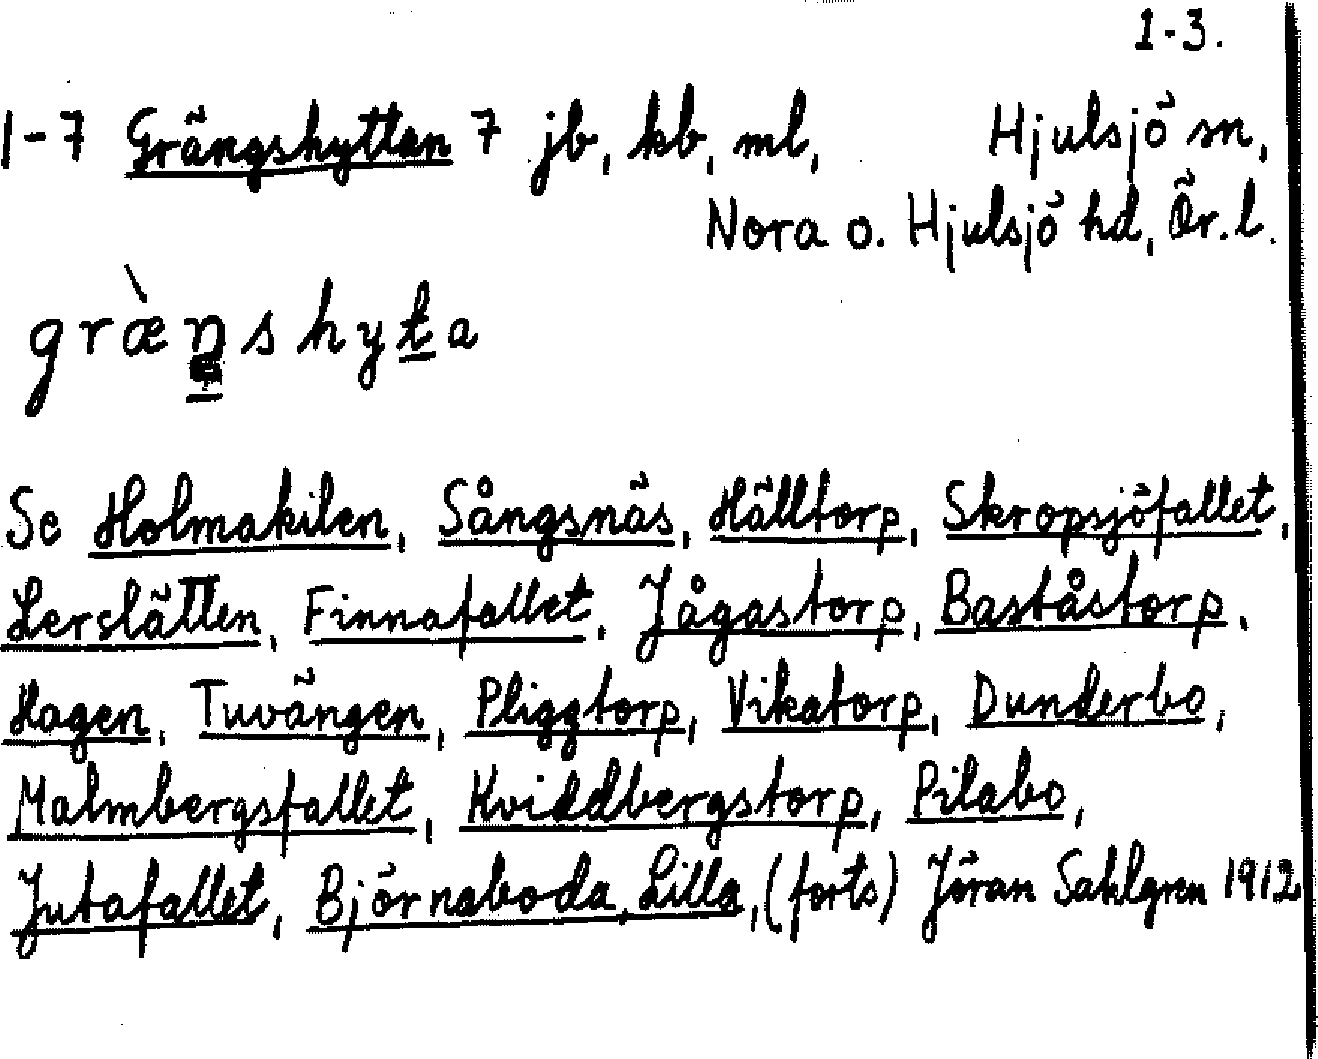 1-3.
1-7 Grängshyttan 7 jb, kb, ml, Hjulsjö sn,
Nora o. Hjulsjö hd, Ör. l.
græ̀ŋshyta
Se Holmakilen, Sångsnäs, Hälltorp, Skropsjöfallet,
Lerslätten, Finnafallet, Jågastorp, Baståstorp,
Hagen, Tuvängen, Pliggtorp, Vikatorp, Dunderbo,
Malmbergsfallet, Kviddbergstorp, Pilabo,
Jutafallet, Björnaboda, Lilla, (forts) Jöran Sahlgren 1912